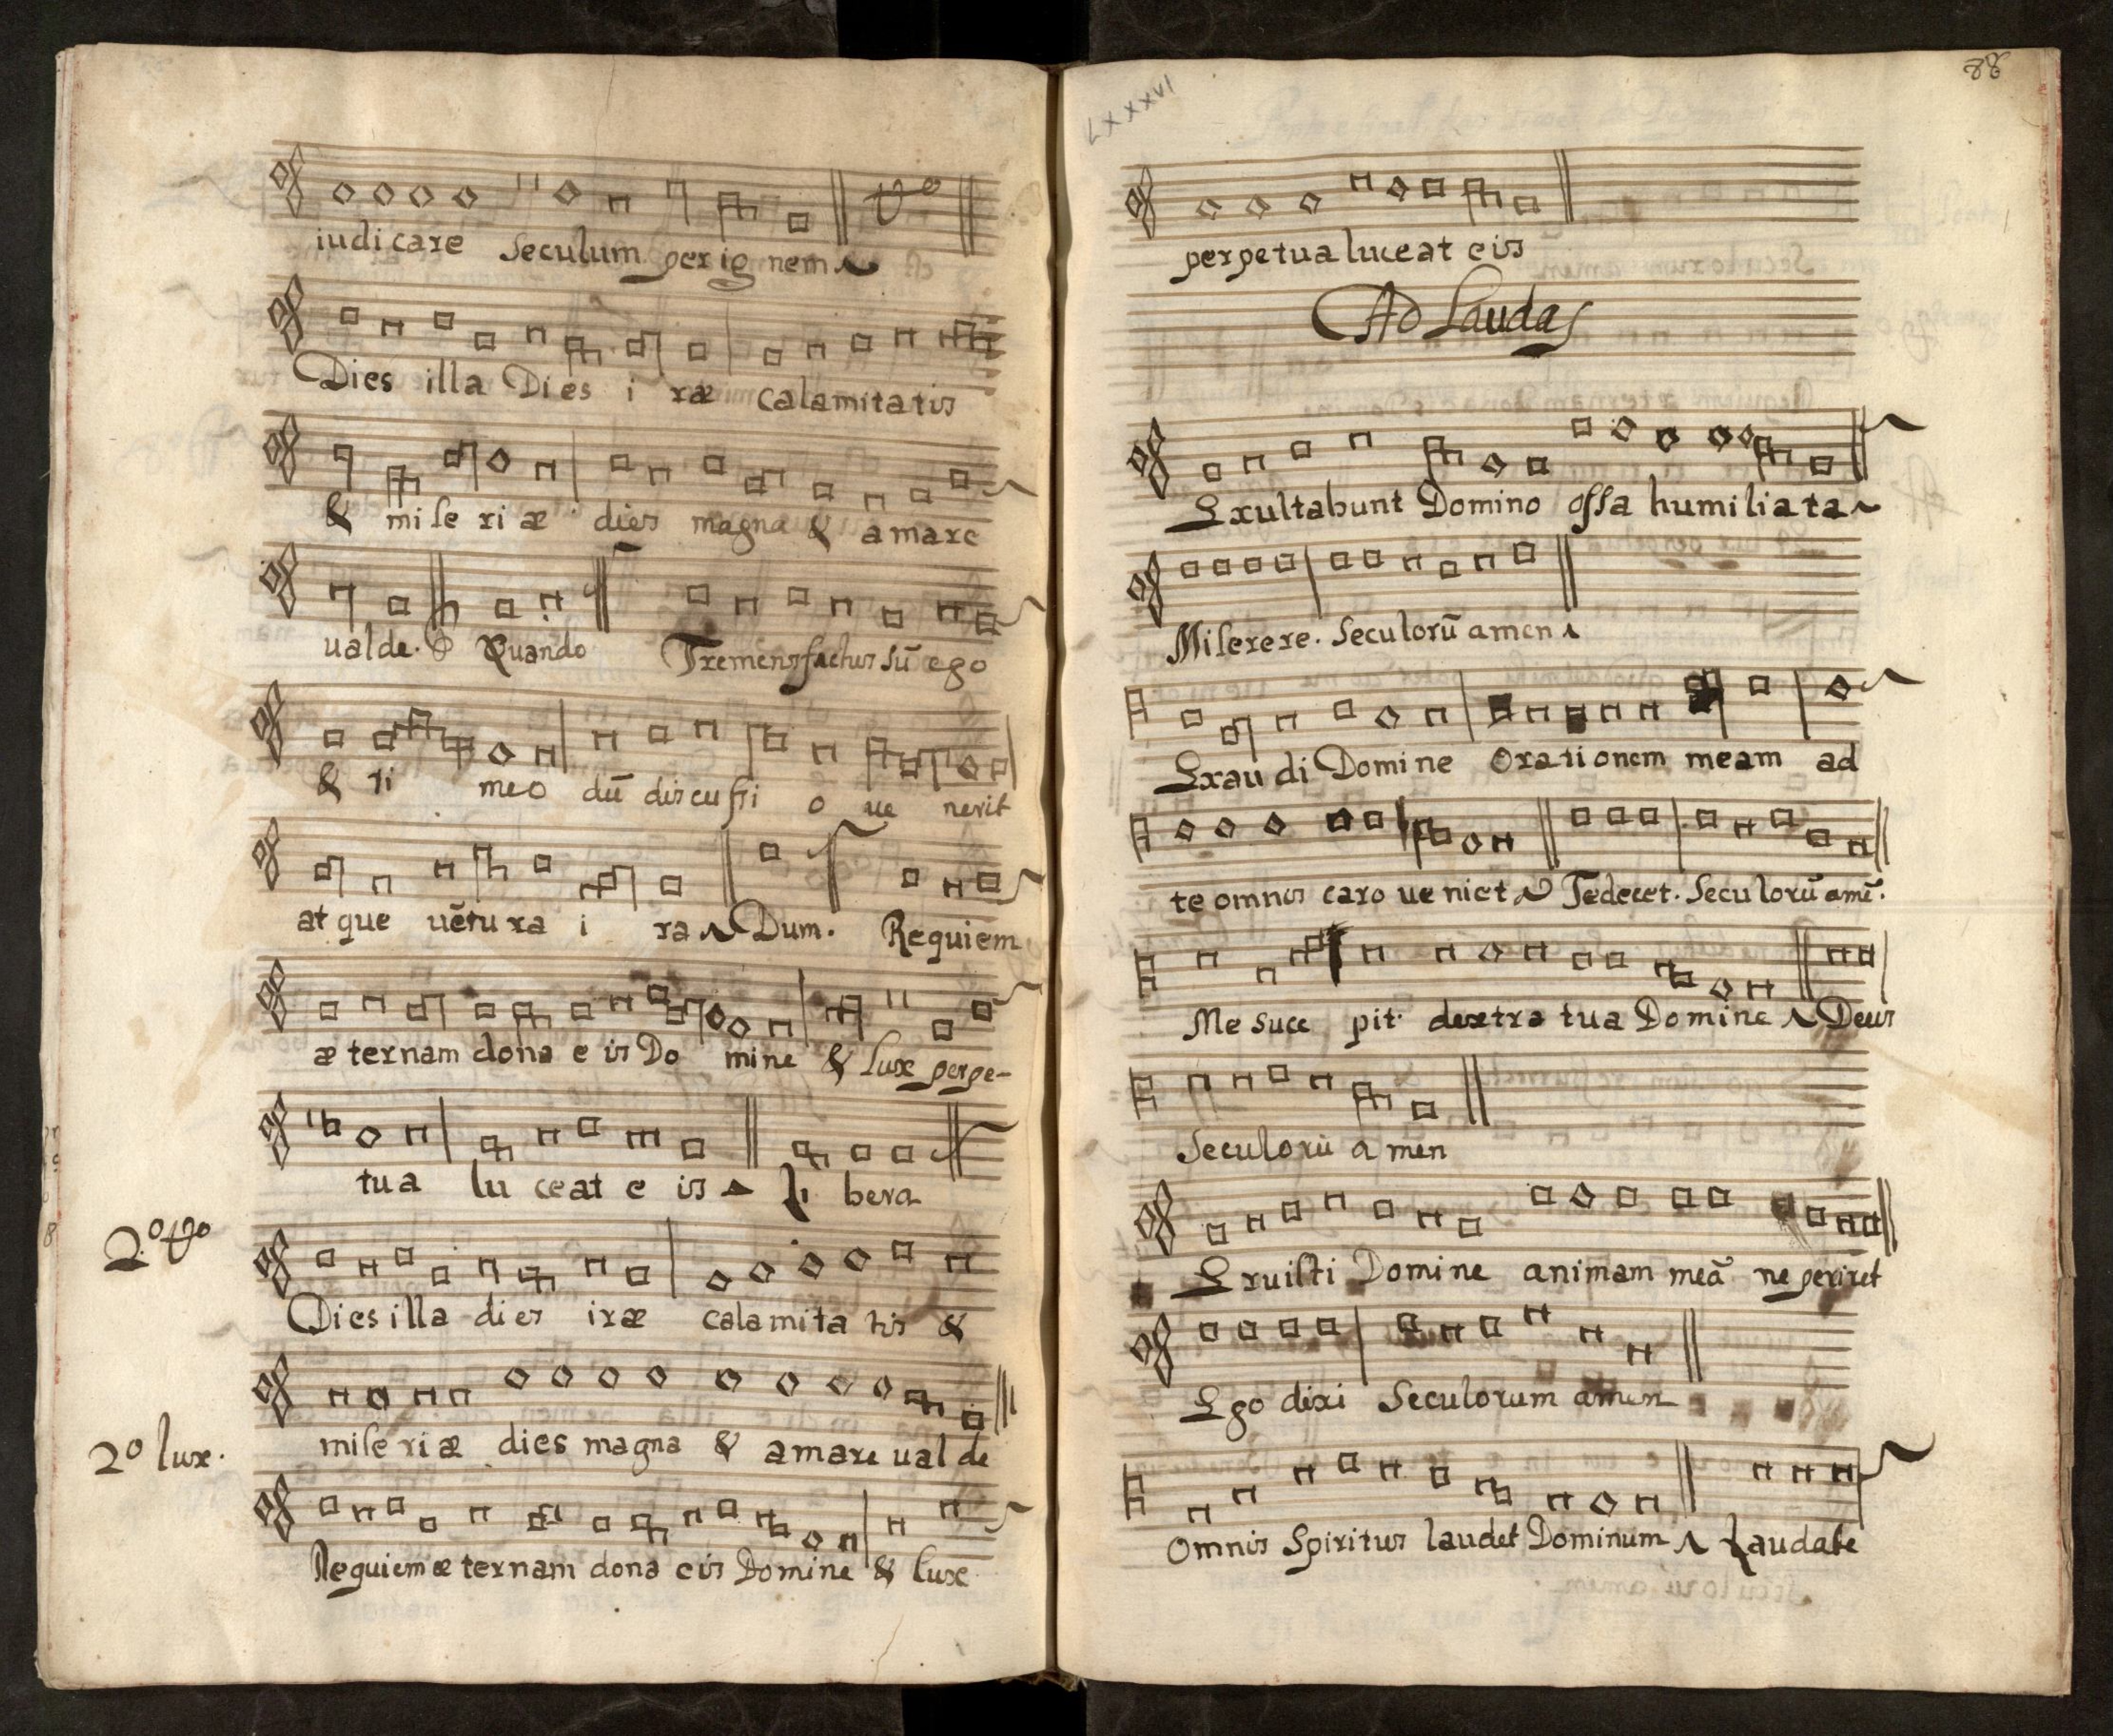 iudicare seculum per ig nem Vo
Dies illa Dies i ræ calamitatis
& mise ri æ dies magna & amare
ualde. Quando Tremens factus sū ego
& ti meo dū discussi o ue nerit
at que uētu ra i ra Dum. Requiem
æ ternam dona e is Do mine & lux perpe-
tua lu ceat e is Li bera
2º Vo
Dies illa dies iræ calamita tis &
mise ri æ dies magna & amare ual de
2º lux.
Requiem æ ternam dona eis Domine & lux
LXXXVI
88
perpetua luceat eis
Ad Laudas
Exultabunt Domino ossa humiliata
Miserere. Seculorū amen
Exau di Domine Orationem meam ad
te omnis caro ue niet Te decet. Seculorū amē.
Me susce pit dextra tua Domine Deus
Seculorū a men
Eruisti Domine animam meā ne periret
Ego dixi Seculorum amen
Omnis Spiritus laudet Dominum Laudate